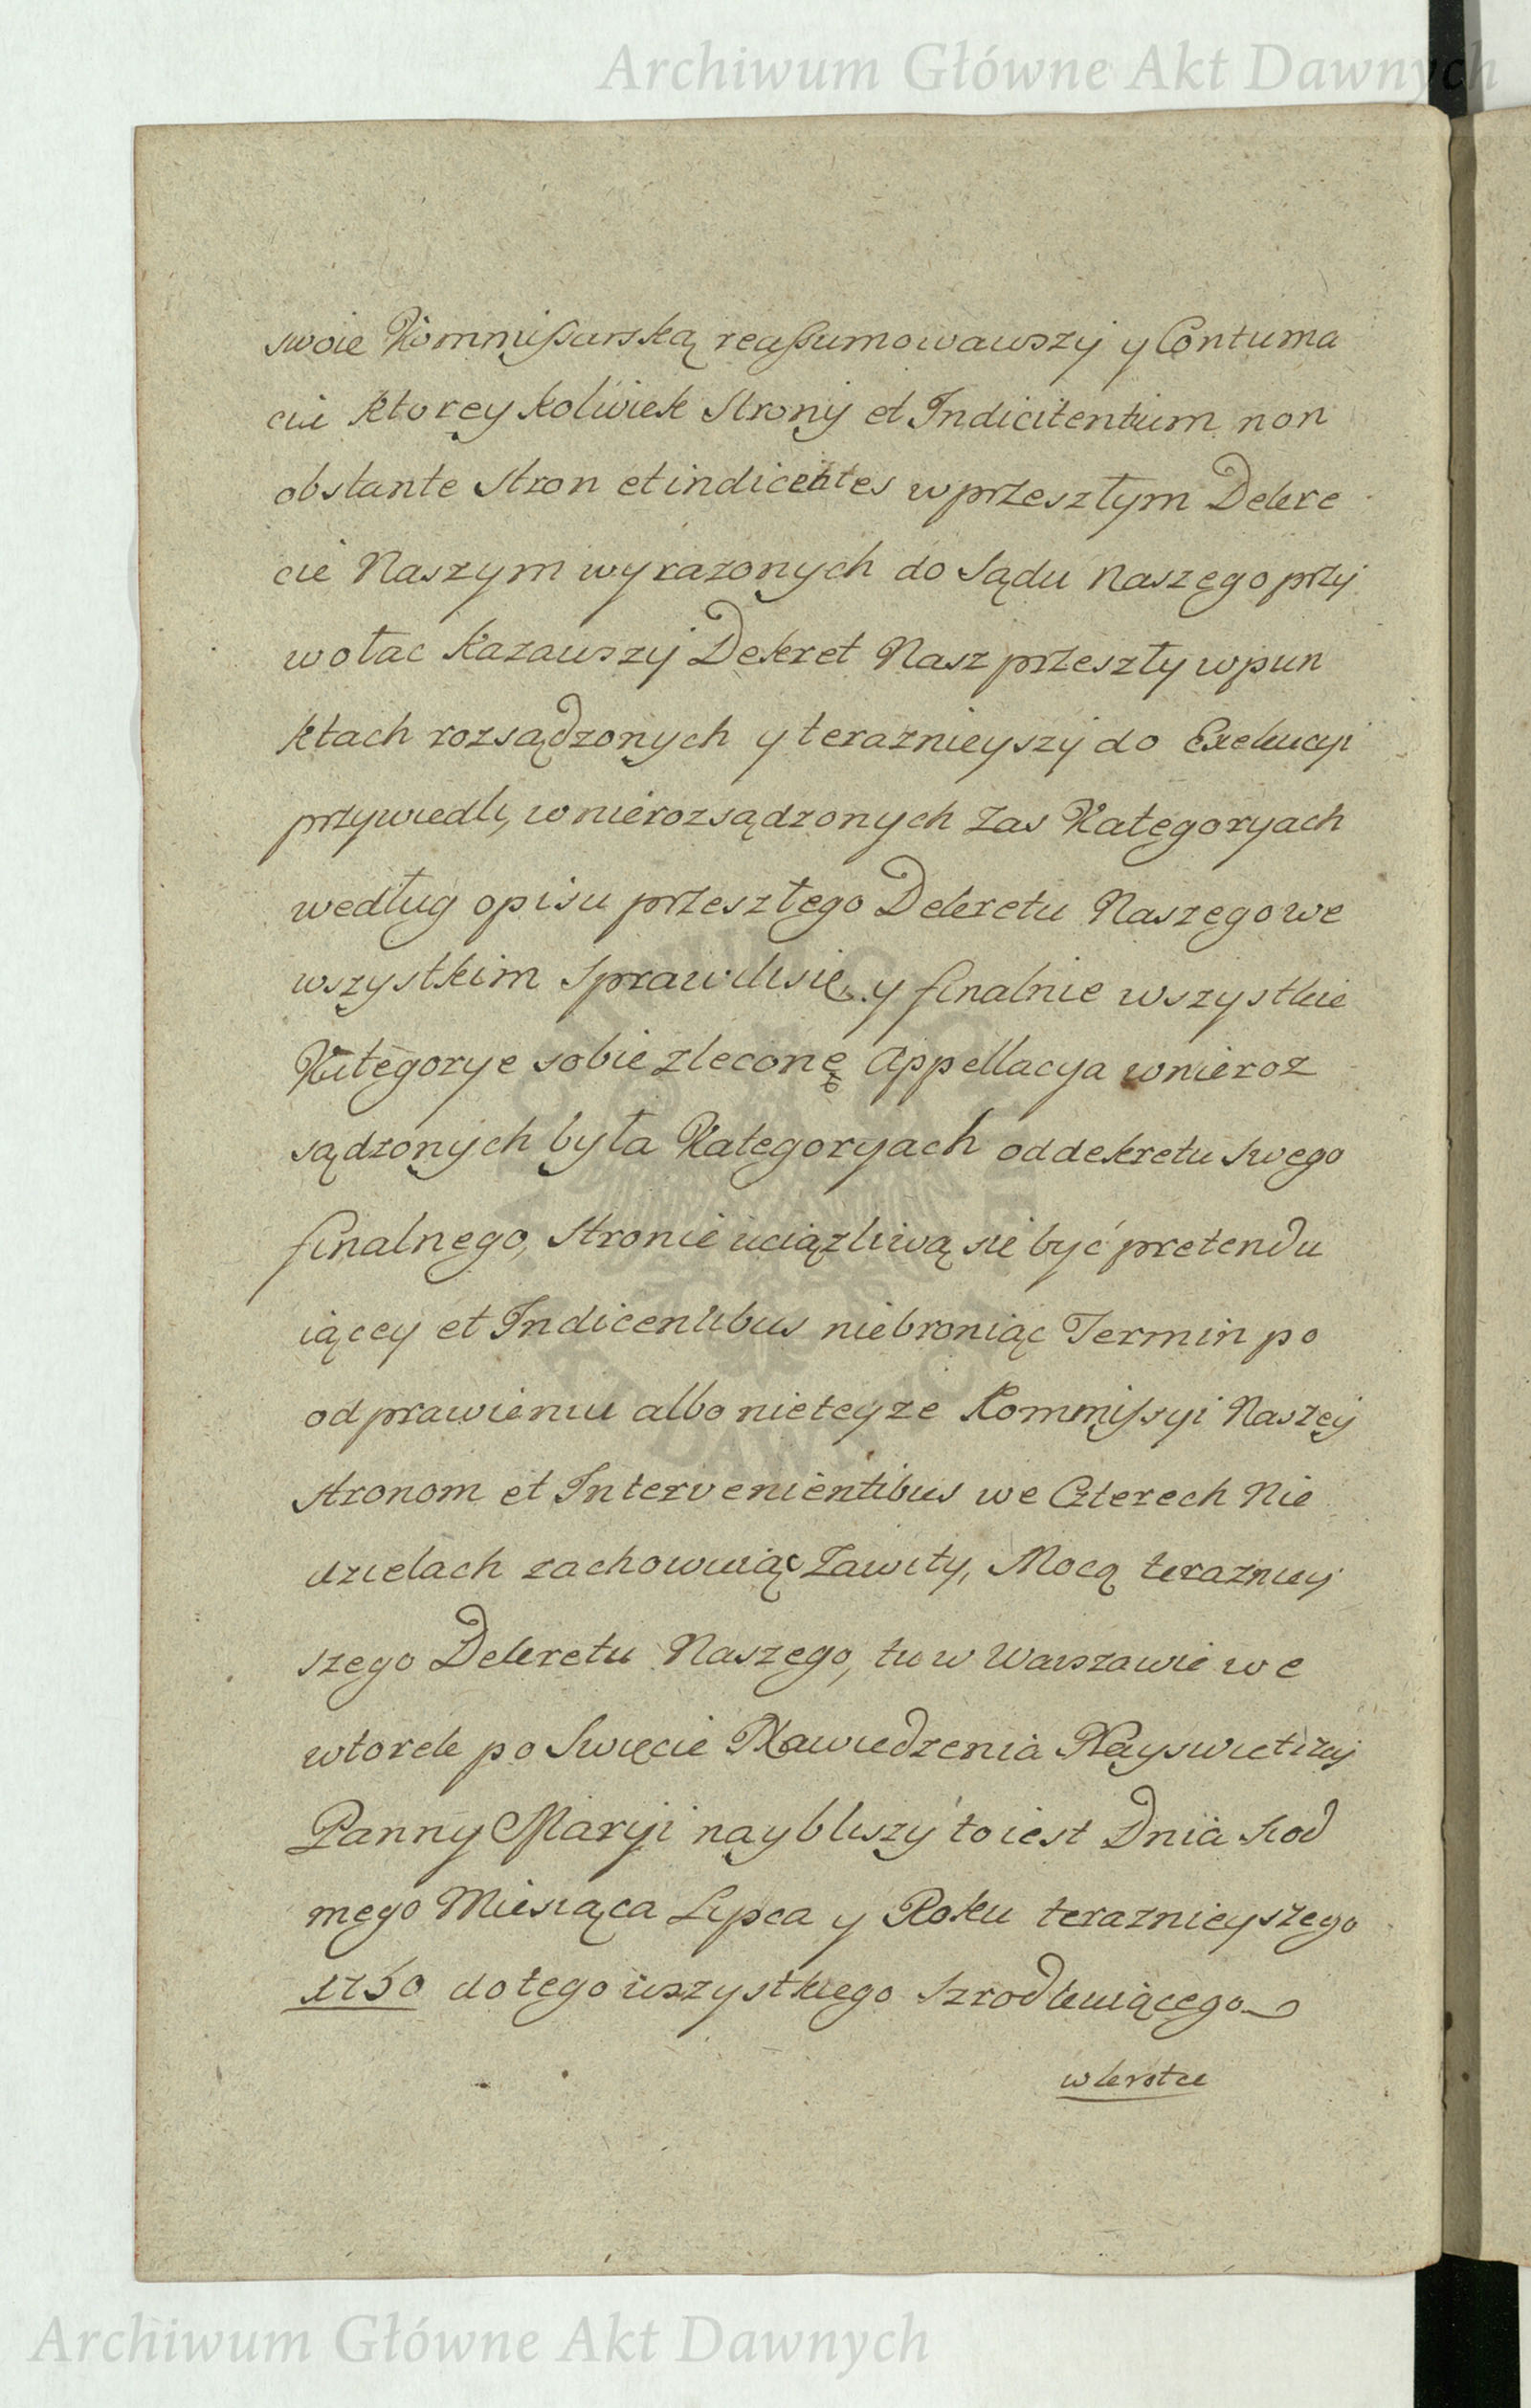 Archiwum Główne Akt Dawnych
swoie Kommissarską reassumowawszy y Contuma
cie ktorey kolwiek Strony et Indicitentium non
obstante Stron et indicentes w przeszłym Dekre
cie Naszym wyrazonych do Sądu Naszego przy
wołac kazawszy Dekret Nasz przeszły w pun
ktach rozsądzonych y teraznieyszy do Exekucyi
przywiedli, w nierozsądzonych zas Kategoryach
według opisu przeszłego Dekretu Naszego we
wszystkim sprawili się, y finalnie wszystkie
Kategorye sobie zlecone Appellacya w nieroz
sądzonych była Kategoryach od dekretu swego
finalnego, Stronie uciązliwą się być pretendu
iącey et Indicentibus niebroniąc Termin po
odprawieniu albo nie teyze Kommissyi Naszey
stronom et Intervenientibus we Czterech Nie
dzielach zachowuiąc Zawity, Mocą terazniey
szego Dekretu Naszego, tu w Warszawie we
wtorek po Swięcie Nawiedzenia Nayswietszey
Panny Maryi naybliszy to iest Dnia Siod
mego Miesiąca Lipca y Roku teraznieyszego
1750 do tego wszystkiego Szrodkuiącego
wkrotce
Archiwum Główne Akt Dawnych